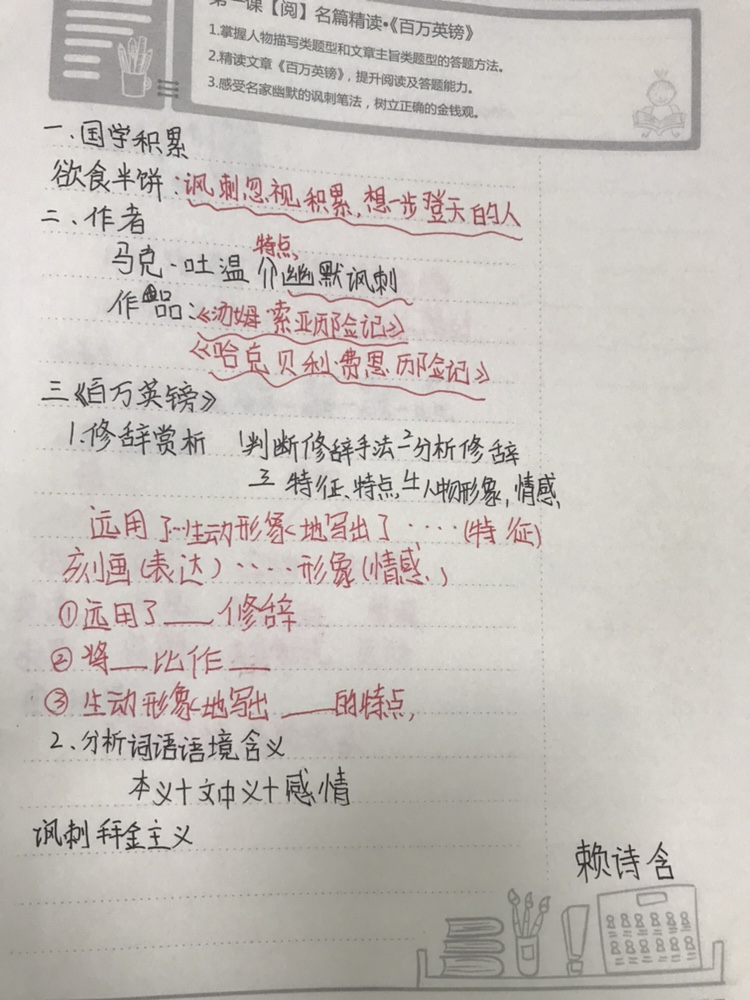 第一课【阅】名篇精读·《百万英镑》
1.掌握人物描写类题型和文章主旨类题型的答题方法。
2.精读文章《百万英镑》，提升阅读及答题能力。
3.感受名家幽默的讽刺笔法，树立正确的金钱观。
一、国学积累
欲食半饼：讽刺忽视积累，想一步登天的人
二、作者
特点
马克·吐温 幽默讽刺
作品：《汤姆·索亚历险记》
《哈克贝利·费恩历险记》
三《百万英镑》
1.修辞赏析 1判断修辞手法 2分析修辞
3 特征、特点 4人物形象，情感
运用了…生动形象地写出了····(特征)
刻画(表达)····形象(情感)
①运用了___修辞
②将___比作___
③生动形象地写出___的特点
2.分析词语语境含义
本义+文中义+感情
讽刺拜金主义
赖诗含